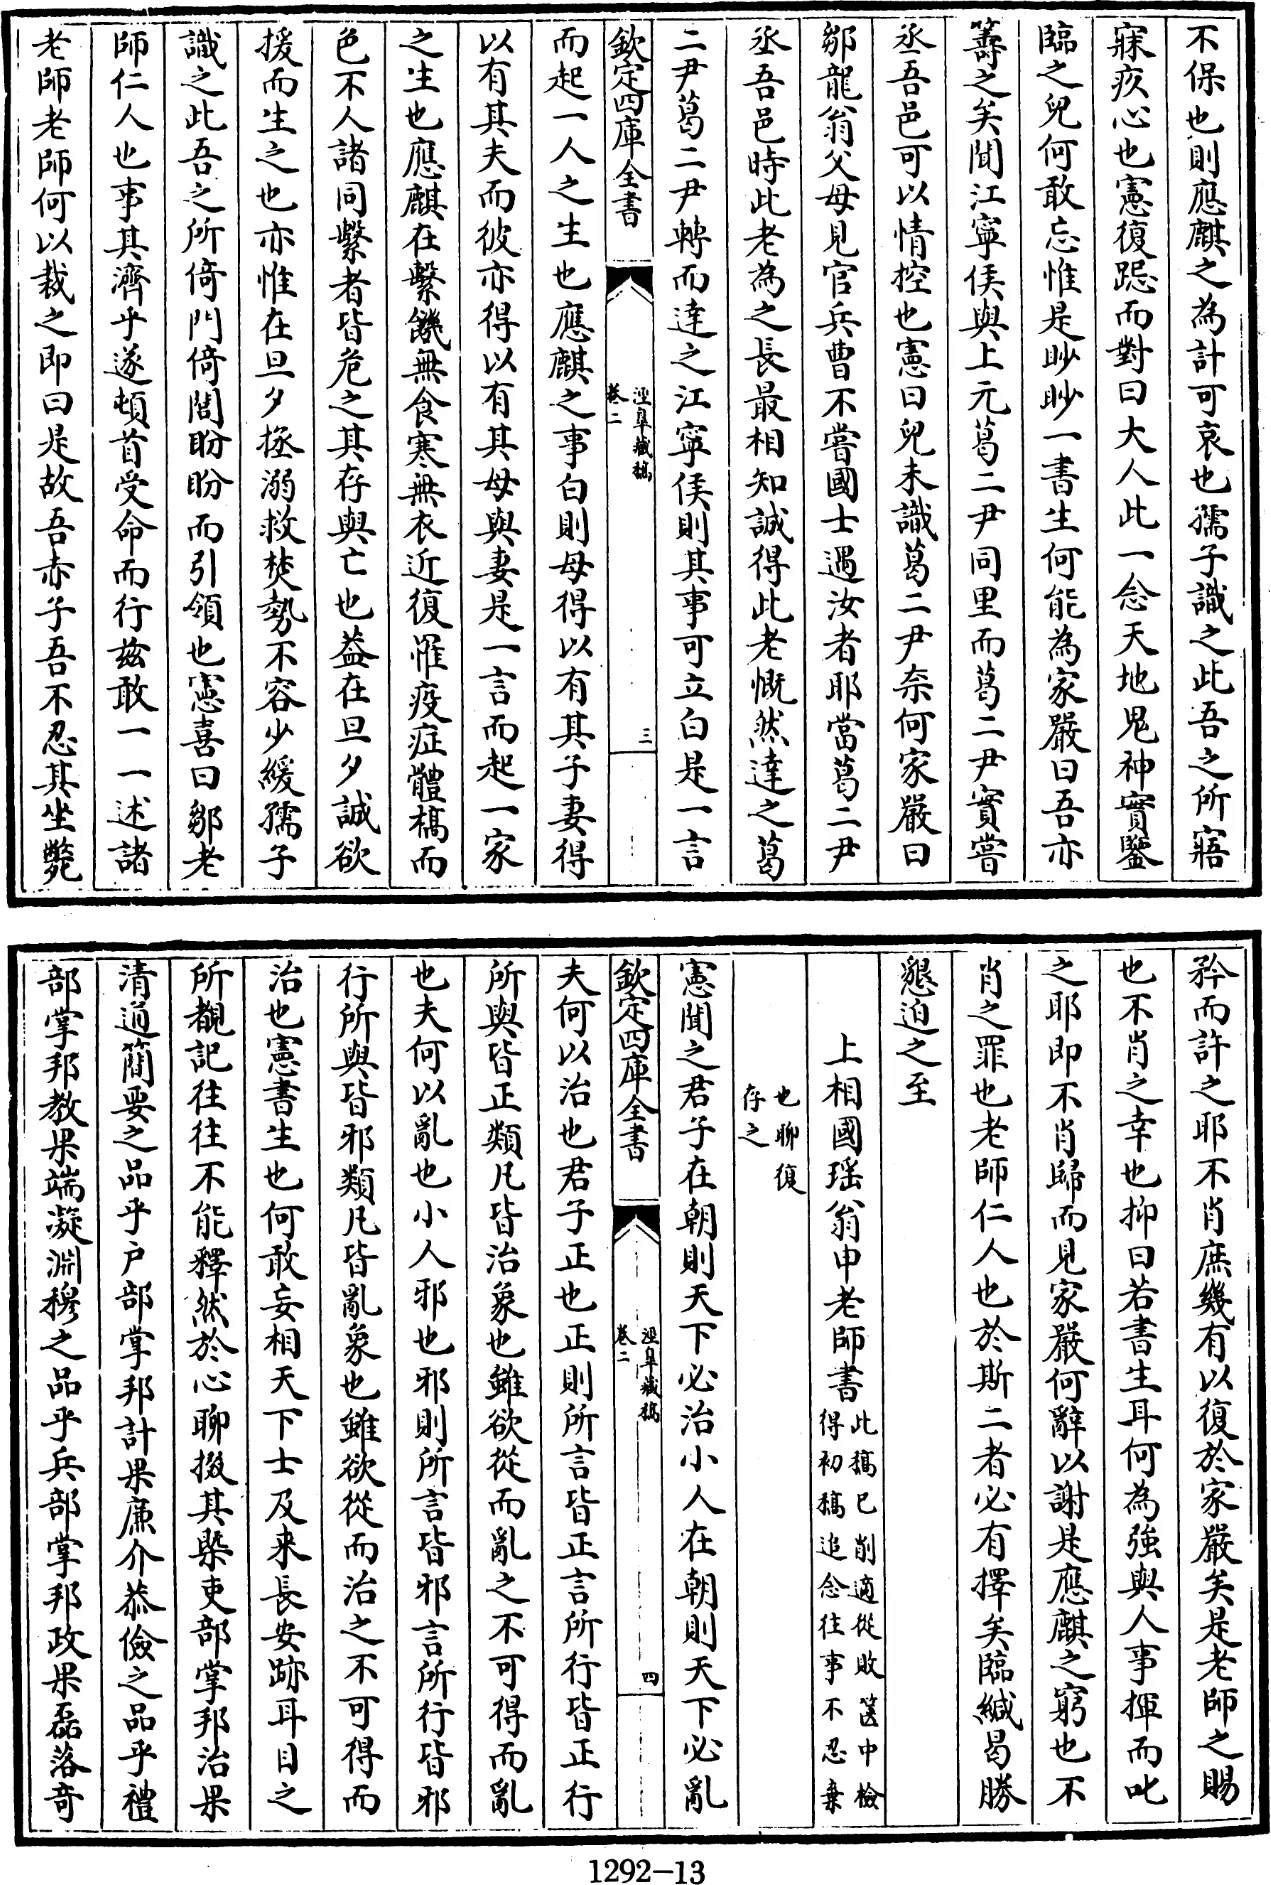 不保也則應麒之為計可哀也孺子識之此吾之所寤
寐疚心也憲復跽而對曰大人此一念天地鬼神實鑒
臨之兒何敢忘惟是眇眇一書生何能為家嚴曰吾亦
籌之矣聞江寧侯與上元葛二尹同里而葛二尹實嘗
丞吾邑可以情控也憲曰兒未識葛二尹奈何家嚴曰
鄒龍翁父母見官兵曹不嘗國士遇汝者耶當葛二尹
丞吾邑時此老為之長最相知誠得此老慨然達之葛
二尹葛二尹轉而達之江寧侯則其事可立白是一言
欽定四庫全書
涇臯藏稿
卷二
三
而起一人之生也應麒之事白則母得以有其子妻得
以有其夫而彼亦得以有其母與妻是一言而起一家
之生也應麒在繫饑無食寒無衣近復罹疫症體槁而
色不人諸同繫者皆危之其存與亡也葢在旦夕誠欲
援而生之也亦惟在旦夕拯溺救焚勢不容少緩孺子
識之此吾之所倚門倚閭盼盼而引領也憲喜曰鄒老
師仁人也事其濟乎遂頓首受命而行兹敢一一述諸
老師老師何以裁之即曰是故吾赤子吾不忍其坐斃
矜而許之耶不肖庶幾有以復於家嚴矣是老師之賜
也不肖之幸也抑曰若書生耳何為強與人事揮而叱
之耶即不肖歸而見家嚴何辭以謝是應麒之窮也不
肖之罪也老師仁人也於斯二者必有擇矣臨緘曷勝
懇迫之至
上相國瑶翁申老師書此稿已削適從敗篋中檢
得初稿追念往事不忍棄
也聊復
存之
憲聞之君子在朝則天下必治小人在朝則天下必亂
欽定四庫全書
涇臯藏稿
卷二
四
夫何以治也君子正也正則所言皆正言所行皆正行
所與皆正類凡皆治象也雖欲從而亂之不可得而亂
也夫何以亂也小人邪也邪則所言皆邪言所行皆邪
行所與皆邪類凡皆亂象也雖欲從而治之不可得而
治也憲書生也何敢妄相天下士及来長安跡耳目之
所覩記往往不能釋然於心聊掇其槩吏部掌邦治果
清通簡要之品乎户部掌邦計果廉介恭儉之品乎禮
部掌邦教果端凝淵穆之品乎兵部掌邦政果磊落竒
1292-13